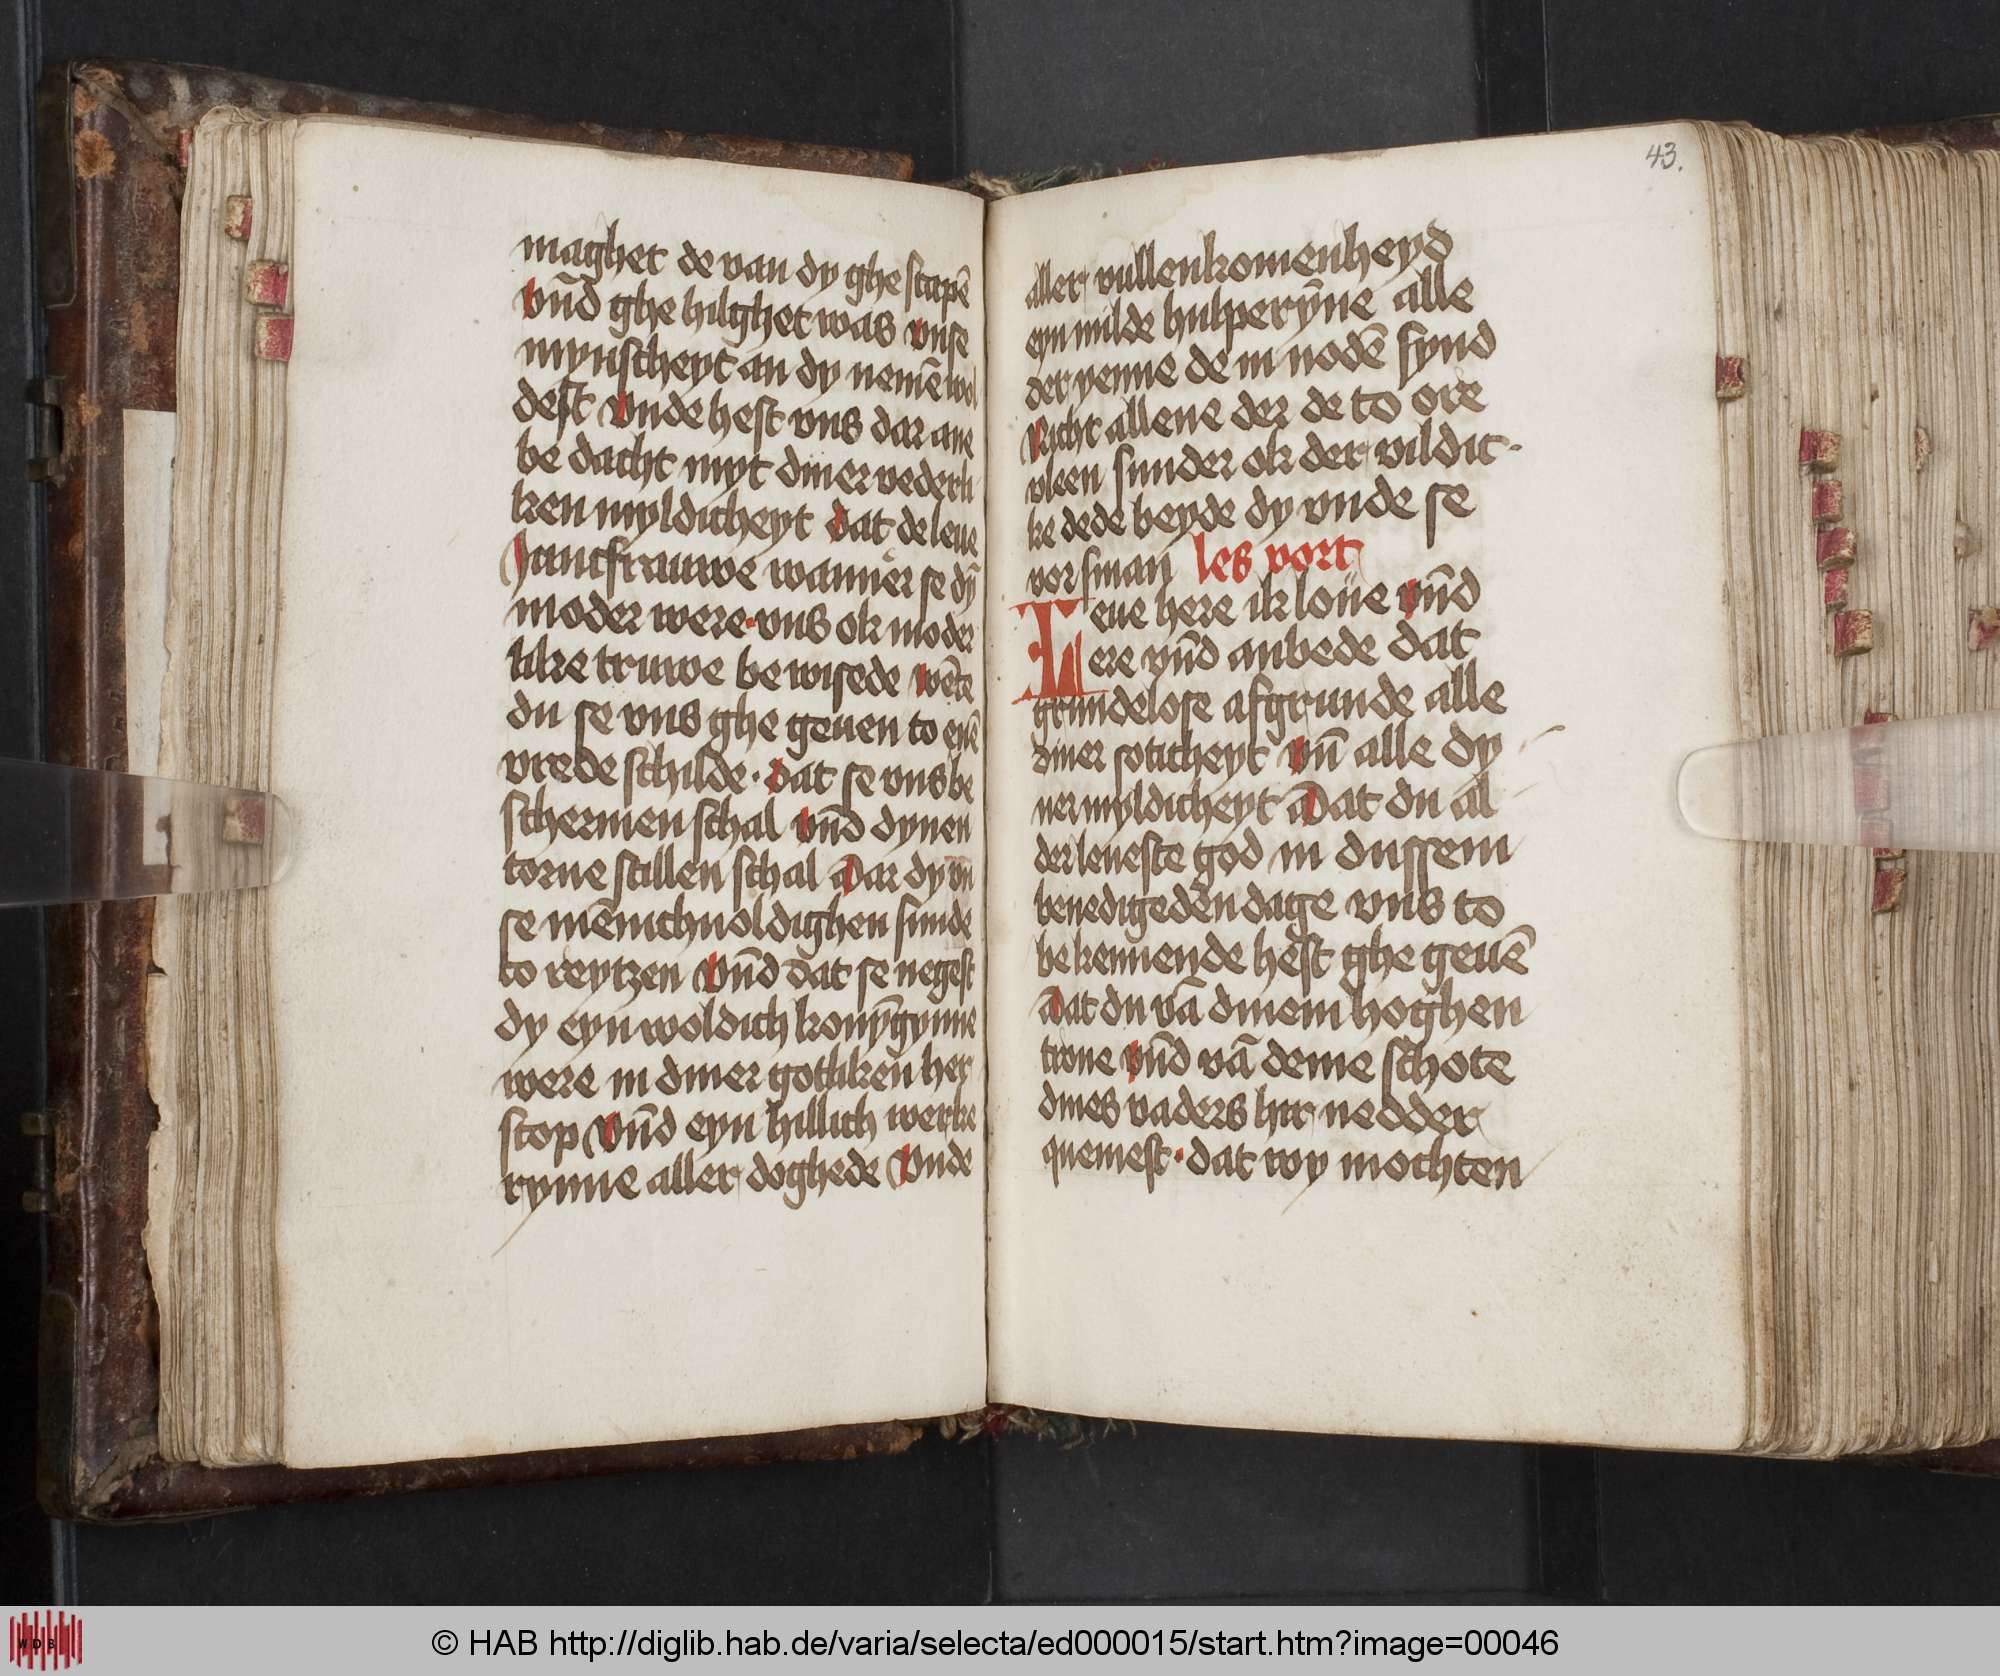 maghet de van dy ghe scapē
vn̄d ghe hilghet was vnse
mynscheyt an dy nemē wol
dest vnde hest vns dar ane
be dacht myt diner vederli
ken myldicheyt dat de leue
Juncfrauwe wanner se dy
moder were · vns ok moder
like truwe be wisede wēte
du se vns ghe geuen to enē
vrede schilde · dat se vns be
schermen schal vn̄d dynen
torne stillen schal Dar dy vn
se mēnichuoldighen sunde
to reytzen vn̄d dat se negest
dy eyn woldich konȳgynne
were in diner gotliken her
scop vn̄d eyn hillich werke
rynne aller doghede Vnde
43.
aller vullenkomenheyd
eyn milde hulperȳne alle
der yenne de in nodē synd
Nicht allene der de to ore
vleen sunder ok der vildic-
ke dede beyde dy vnde se
vor sman les vort
Leue here ik loue vn̄d
ere vn̄d anbede dat
grundelose afgrunde alle
diner soticheyt vn̄ alle dy
ner myldicheyt Dat du al
der leueste god in dussem
benedigeden dage vns to
bekennende hest ghe geuē
Dat du vā dinem hoghen
trone vn̄d vā deme schote
dines vaders hir nedder
quemest · dat wy mochten
WDB
© HAB http://diglib.hab.de/varia/selecta/ed000015/start.htm?image=00046